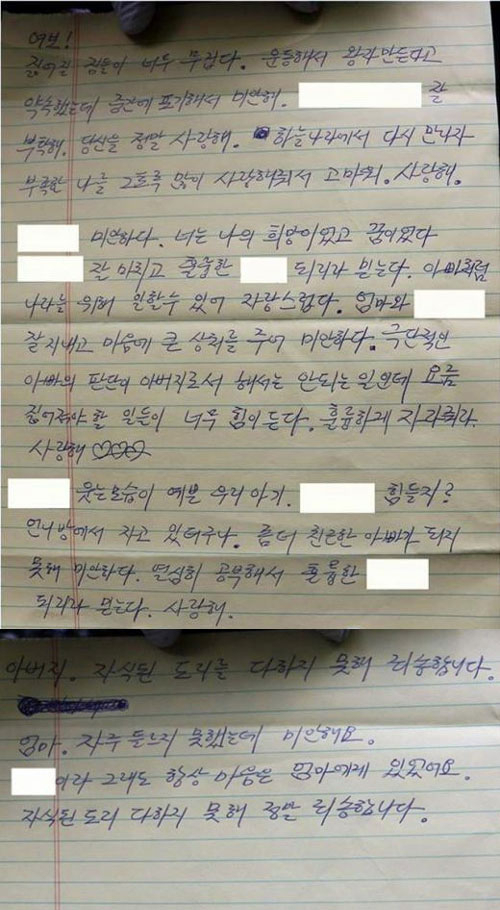 여보!
짊어질 짐들이 너무 무겁다. 운동해서 왕자만든다고
약속했는데 중간에 포기해서 미안해. 잘
부탁해. 당신을 정말 사랑해. 하늘나라에서 다시 만나자
부족한 나를 그토록 많이 사랑해줘서 고마워. 사랑해.
미안하다. 너는 나의 희망이었고 꿈이었다
잘 마치고 훌륭한 되리라 믿는다. 아빠처럼
나라를 위해 일할수 있어 자랑스럽다. 엄마와
잘 지내고 마음에 큰 상처를 주어 미안하다. 극단적인
아빠의 판단이 아버지로서 해서는 안되는 일인데 요즘
짊어져야 할 일들이 너무 힘이 든다. 훌륭하게 자라줘라
사랑해 ♡♡♡
웃는모습이 예쁜 우리아기. 힘들지?
언니방에서 자고 있더구나. 좀더 친근한 아빠가 되지
못해 미안하다. 열심히 공부해서 훌륭한
되리라 믿는다. 사랑해.
아버지. 자식된 도리를 다하지 못해 죄송합니다.
엄마. 자주 들르지 못했는데 미안해요.
이라 그래도 항상 마음은 엄마에게 있었어요.
자식된 도리 다하지 못해 정말 죄송합니다.